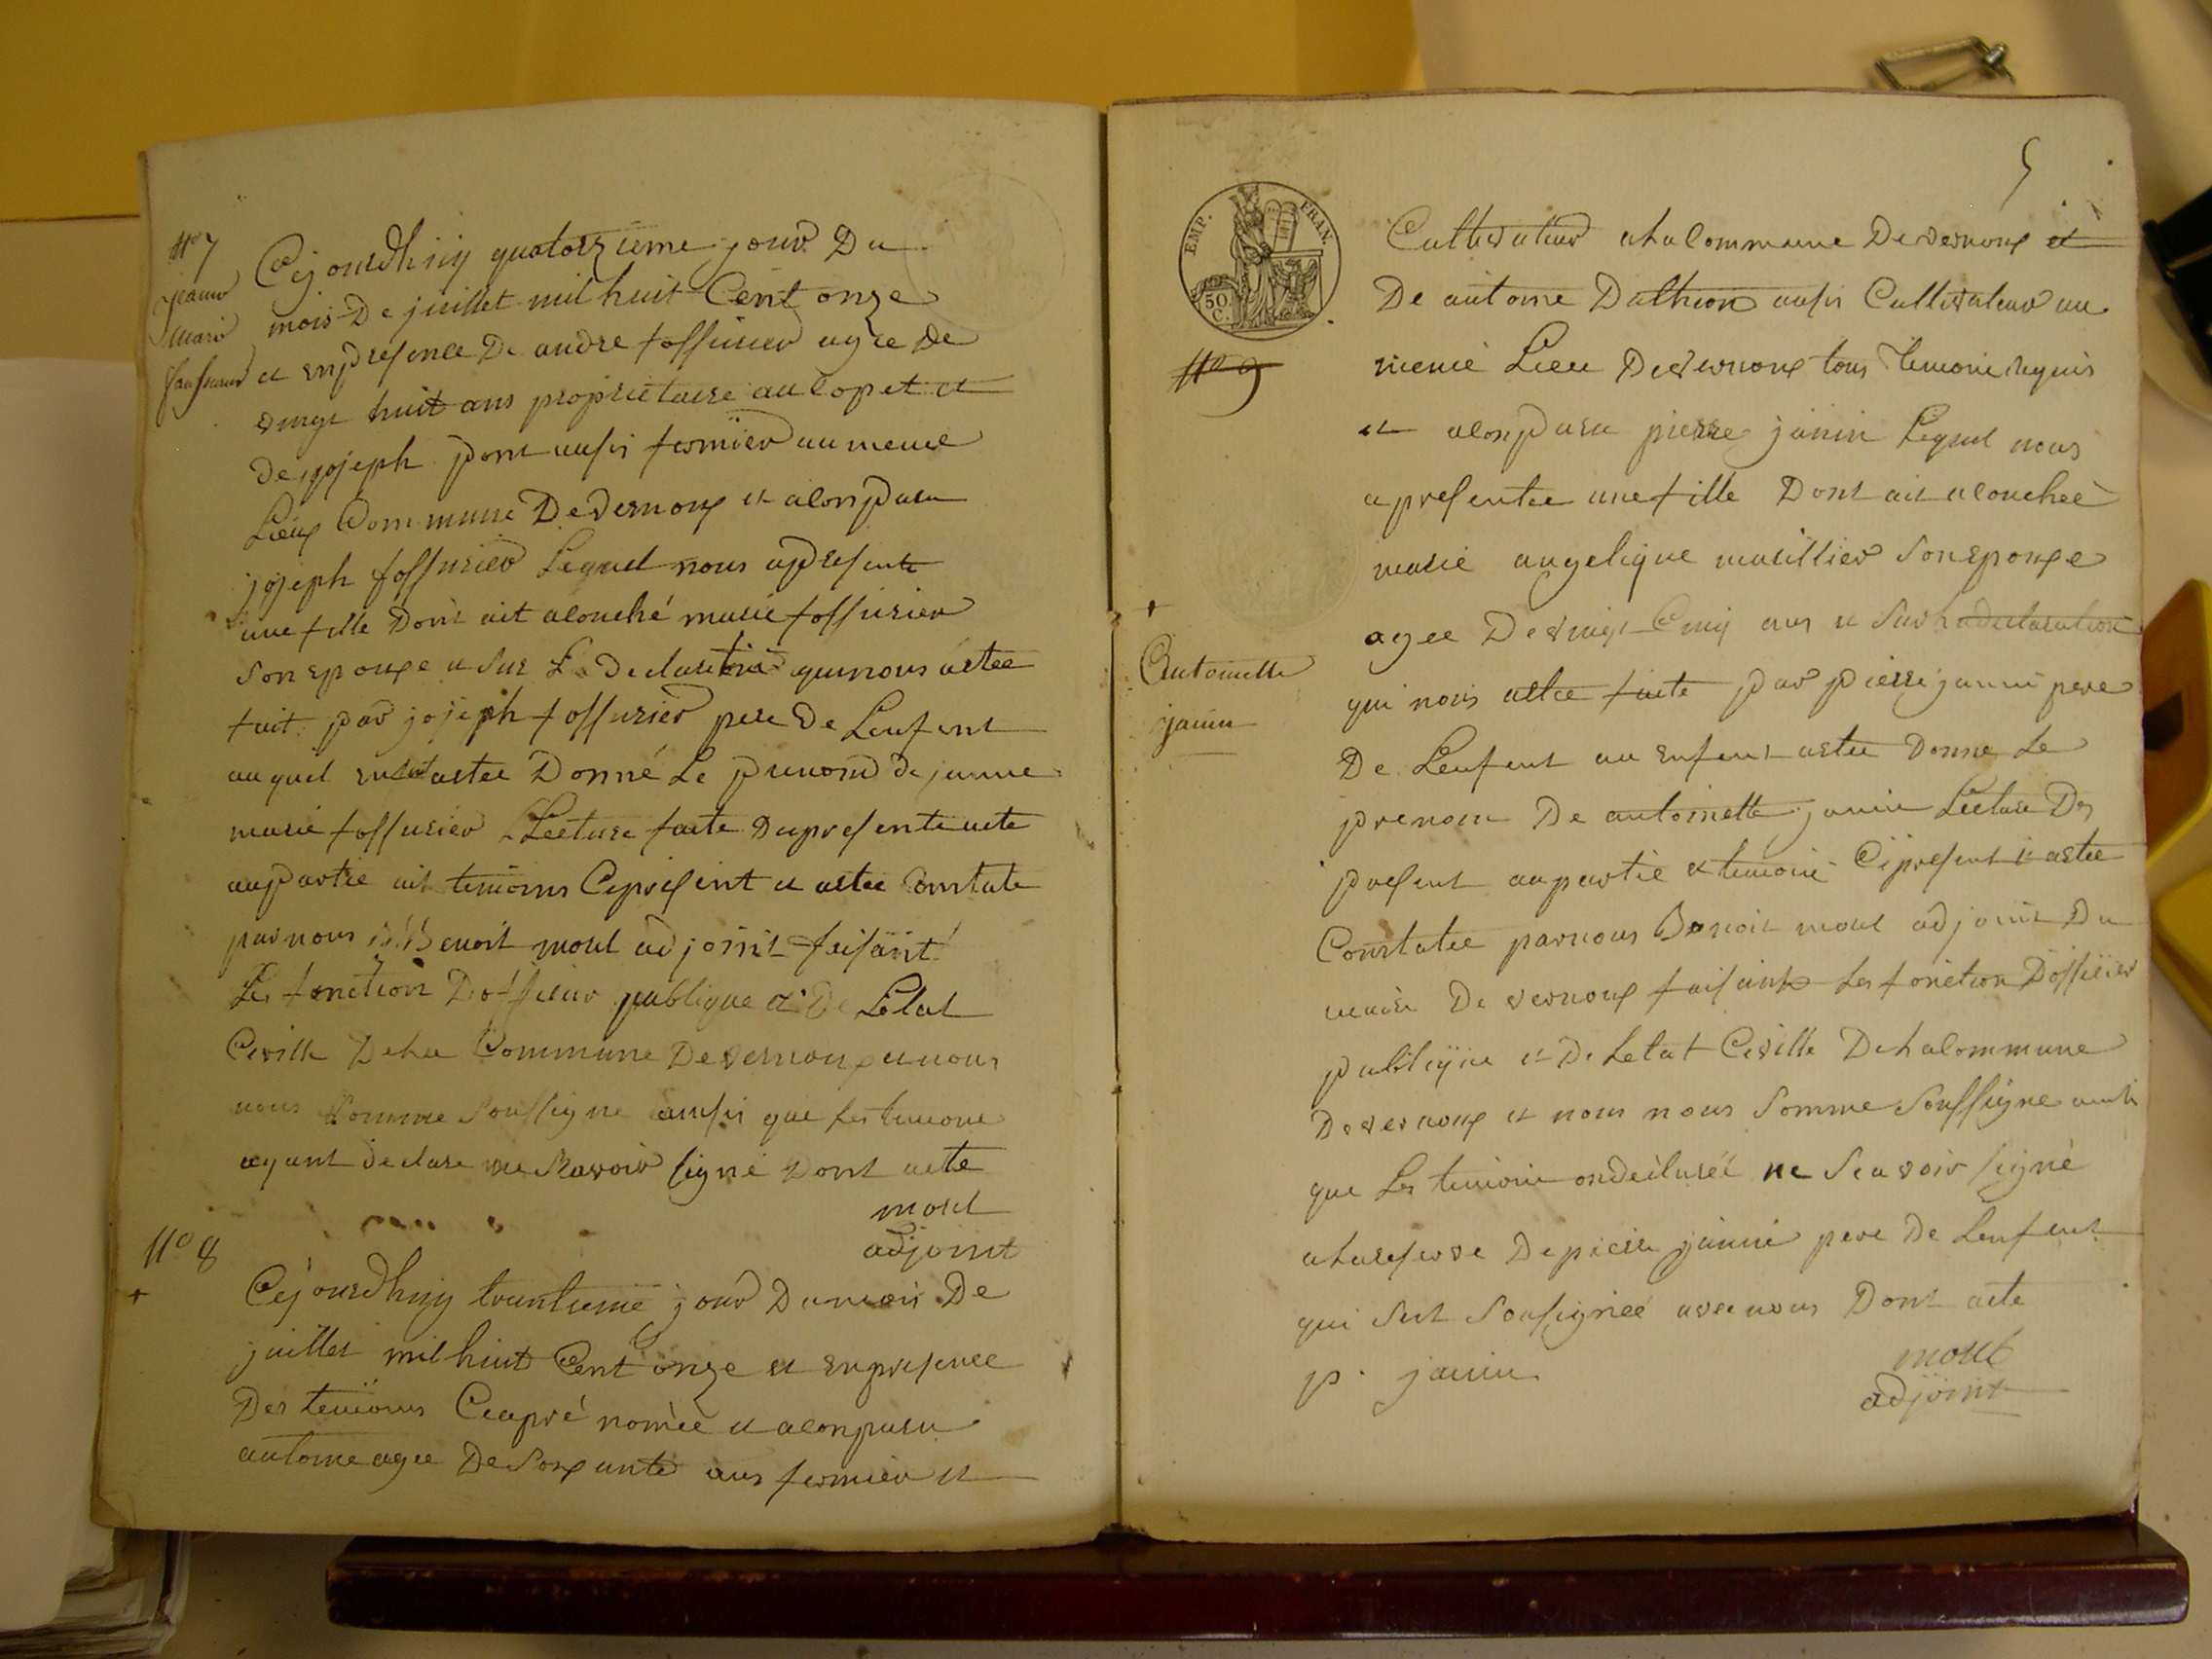 No 7
jeanne
marie
Cejourdhuy quatorzieme jour Du
mois De juillet mil huit Cent onze
et enpresence De andre fossurier agee De
vingt huit ans proprietaire au Copet et
De joseph pont aussi fermier au meme
Lieux Commune De vernoux et a Comparu
joseph fossurier Lequel nous apresente
une fille Dont ait acouché marie fossurier
son epouxe et sur La Declaration qui nous aetee
fait par joseph fossurier pere De Lenfent
auquel enfent aetee Donné Le prenom de jeanne
marie fossurier Lecture faite Dupresente acte
aupartie ait temoins Cypresent et aetee Constate
par nous Benoit morel adjoint faisant
Les fonction Dofficier publique et De Letat
Civille Dela Commune De vernoux et nous
nous somme soussigne aussi que les temoins
ayant declare ne scavoir signé Dont acte
morel
adjoint
No 8
+
Cejourdhuy trantieme jour Du mois De
juillet mil huit Cent onze et enpresence
Des temoins Ceapré nomée et a Comparu
antoine agee De soixante ans fermier et
5
EMP. FRAN.
50. C.
No 9
+
Antoinette
janin
Cultivateur a la Commune De vernoux et
De antoine Dathion aussi Cultivateur au
meme Lieu De vernoux tous temoin requis
et a Comparu pierre janin Lequel nous
a presentee une fille Dont ait acouchee
marie angelique marillier son epouxe
agee De vingt Cinq ans et sur la declaration
qui nous aetee faite par pierre janin pere
De Lenfent au enfent aetee Donne Le
prenom De antoinette janin Lecture Des
present aupartie et temoin Cypresent et aetee
Constatee par nous Benoit morel adjoint Du
maire De vernoux faisant Les fonction Dofficier
publique et De Letat Civille De la Commune
De vernoux et nous nous somme soussigne
que Les temoin on declareé ne scavoir signé
a la reserve De pierre janin pere De Lenfent
qui sest sousignee avec nous Dont acte
p. janin
morel
adjoint